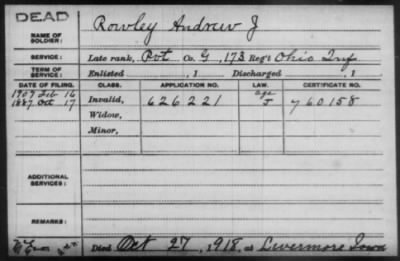 DEAD
NAME OF SOLDIER: Rowley Andrew J
SERVICE: Late rank, Pvt Co. G, 173 Reg't Ohio Inf
TERM OF SERVICE: Enlisted , 1 Discharged , 1
DATE OF FILING. CLASS. APPLICATION NO. LAW. CERTIFICATE NO.
1907 Feb 16 age
1887 Oct 17 Invalid, 626221 J 760158
Widow,
Minor,
ADDITIONAL SERVICES:
REMARKS:
Died Oct 27, 1918, at Livermore Iowa